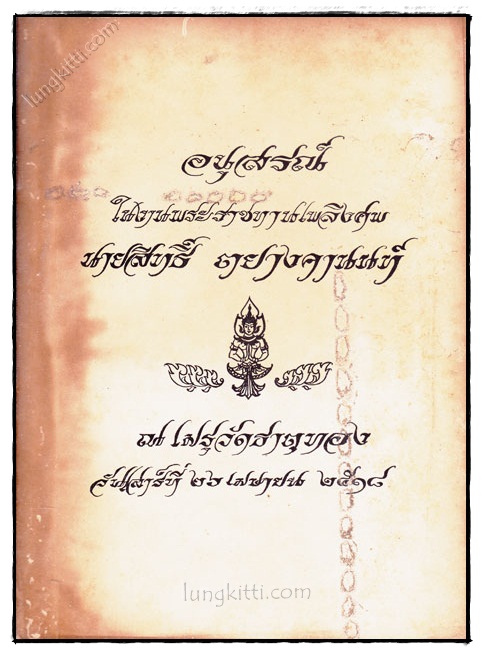 lungkitti.com
อนุสรณ์
ในงานพระราชทานเพลิงศพ
นายสิทธิ์
ณ เมรุวัดธาตุทอง
วันเสาร์ที่ ๒๖ เมษายน ๒๕๑๘
lungkitti.com